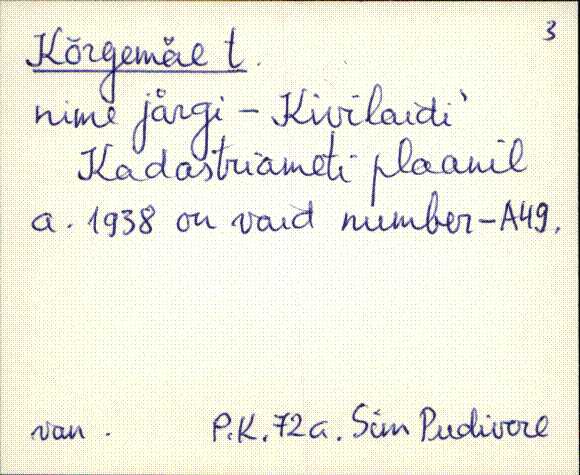 3
Kõrgemäe t.
nime järgi - Kivilaidi'
Kadastriameti plaanil
a. 1938 on vaid number-A49.
van.
P.K. 72a. Sim Pudivere